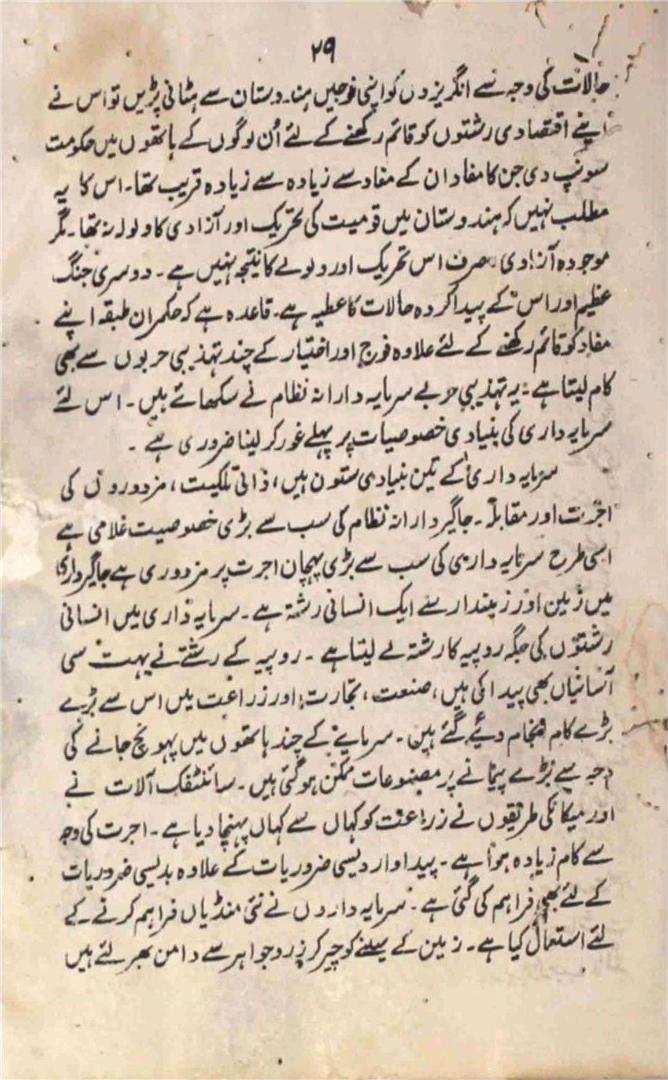 ۲۹
حالات کی وجہ سے انگریزوں کو اپنی فوجیں ہندوستان سے ہٹانی پڑیں تو اس نے
اپنے اقتصادی رشتوں کو قائم رکھنے کے لئے اُن لوگوں کے ہاتھوں میں حکومت
سونپ دی جن کا مفاد ان کے مفاد سے زیادہ سے زیادہ قریب تھا۔ اس کا یہ
مطلب نہیں کہ ہندوستان میں قومیت کی تحریک اور آزادی کا ولولہ نہ تھا۔ مگر
موجودہ آزادی صرف اس تحریک اور ولولے کا نتیجہ نہیں ہے۔ دوسری جنگ
عظیم اور اس کے پیدا کردہ حالات کا عطیہ ہے۔ قاعدہ ہے کہ حکمران طبقہ اپنے
مفاد کو قائم رکھنے کے لئے علاوہ فوج اور اختیار کے چند تہذیبی حربوں سے بھی
کام لیتا ہے۔ یہ تہذیبی حربے سرمایہ دارانہ نظام نے سکھائے ہیں۔ اس لئے
سرمایہ داری کی بنیادی خصوصیات پر پہلے غور کر لینا ضروری ہے۔
سرمایہ داری کے تین بنیادی ستون ہیں، ذاتی ملکیت، مزدوروں کی
اجرت اور مقابلہ۔ جاگیردارانہ نظام کی سب سے بڑی خصوصیت غلامی ہے
اسی طرح سرمایہ داری کی سب سے بڑی پہچان اجرت پر مزدوری ہے جاگیرداری
میں زمین اور زمیندار سے ایک انسانی رشتہ ہے۔ سرمایہ داری میں انسانی
رشتوں کی جگہ روپیہ کا رشتہ لے لیتا ہے۔ روپیہ کے رشتے نے بہت سی
آسانیاں بھی پیدا کی ہیں، صنعت، تجارت اور زراعت میں اس سے بڑے
بڑے کام انجام دیئے گئے ہیں۔ سرمایے کے چند ہاتھوں میں پہونچ جانے کی
وجہ سے بڑے پیمانے پر مصنوعات ممکن ہو گئی ہیں۔ سائنٹفک آلات نے
اور میکانکی طریقوں نے زراعت کو کہاں سے کہاں پہنچا دیا ہے۔ اجرت کی وجہ
سے کام زیادہ ہوا ہے۔ پیداوار دیسی ضروریات کے علاوہ بدیسی ضروریات
کے لئے بھی فراہم کی گئی ہے۔ سرمایہ داروں نے نئی منڈیاں فراہم کرنے کے
لئے استعمال کیا ہے۔ زمین کے سینے کو چیر کر زر و جواہر سے دامن بھر لئے ہیں